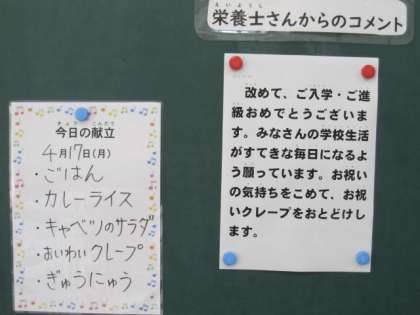 えいようし
栄養士さんからのコメント
改めて、ご入学・ご進
級おめでとうございま
す。みなさんの学校生活
がすてきな毎日になるよ
う願っています。お祝い
の気持ちをこめて、お祝
いクレープをおとどけし
ます。
きょう こんだて
今日の献立
4月17日(月)
・ごはん
・カレーライス
・キャベツのサラダ
・おいわいクレープ
・ぎゅうにゅう